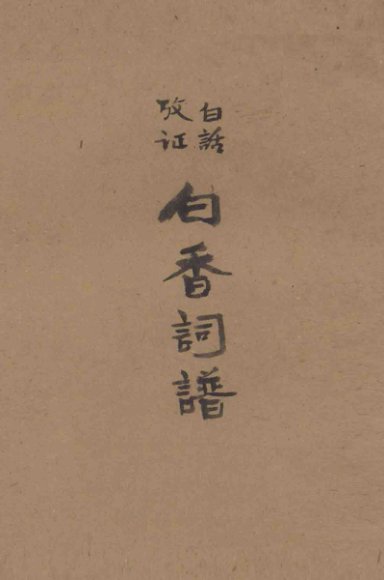 白話
攷证
白香詞譜